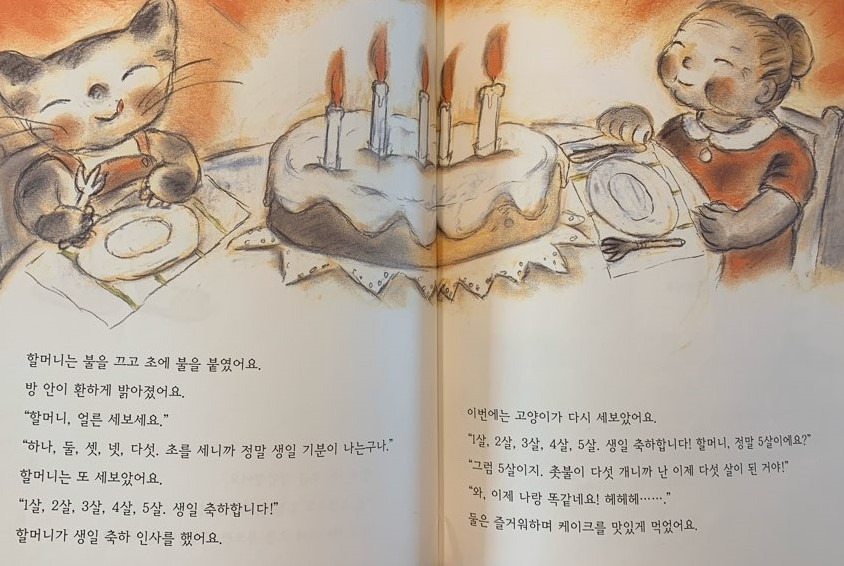 할머니는 불을 끄고 초에 불을 붙였어요.
방 안이 환하게 밝아졌어요.
“할머니, 얼른 세보세요.”
“하나, 둘, 셋, 넷, 다섯. 초를 세니까 정말 생일 기분이 나는구나.”
할머니는 또 세보았어요.
“1살, 2살, 3살, 4살, 5살. 생일 축하합니다!”
할머니가 생일 축하 인사를 했어요.
이번에는 고양이가 다시 세보았어요.
“1살, 2살, 3살, 4살, 5살. 생일 축하합니다! 할머니, 정말 5살이에요?”
“그럼 5살이지. 촛불이 다섯 개니까 난 이제 다섯 살이 된 거야!”
“와, 이제 나랑 똑같네요! 헤헤헤……”
둘은 즐거워하며 케이크를 맛있게 먹었어요.